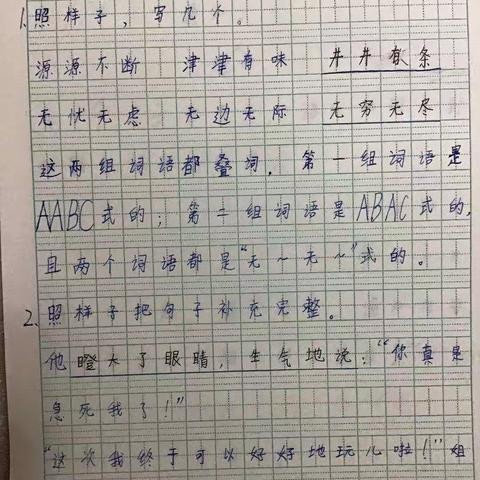 1.照样子，写几个。
源源不断 津津有味 井井有条
无忧无虑 无边无际 无穷无尽
这两组词语都叠词，第一组词语是
AABC式的；第二组词语是ABAC式的，
且两个词语都是“无~无~”式的。
2.照样子把句子补充完整。
他瞪大了眼睛，生气地说：“你真是
急死我了！”
“这次我终于可以好好地玩儿啦！”姐